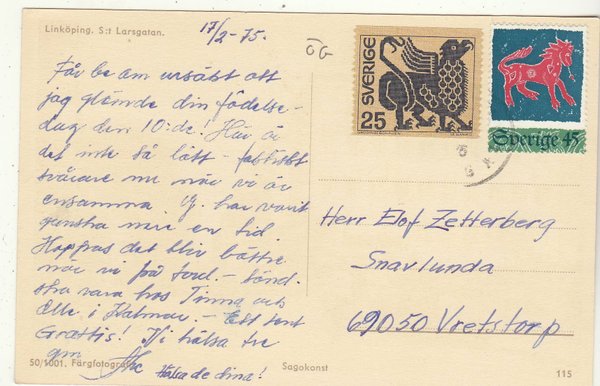 Linköping. S:t Larsgatan.
17/2-75.
ÖG
Får be om ursäkt att
jag glömde din födelse-
dag den 10:de! Här är
det inte så lätt - faktiskt
svårare nu när vi är
ensamma. G. har varit
ganska mié en tid
Hoppas det blir bättre
när vi få soul. -
ska vara hos Tinna och
Olle i Kalmar. - Ett sent
Grattis! Vi hälsa tre
gm
Hälsa de dina!
50/1001. Färgfotografi
Sagokonst
115
SVERIGE
25
Sverige 45
Herr Elof Zetterberg
Snavlunda
69050 Vretstorp